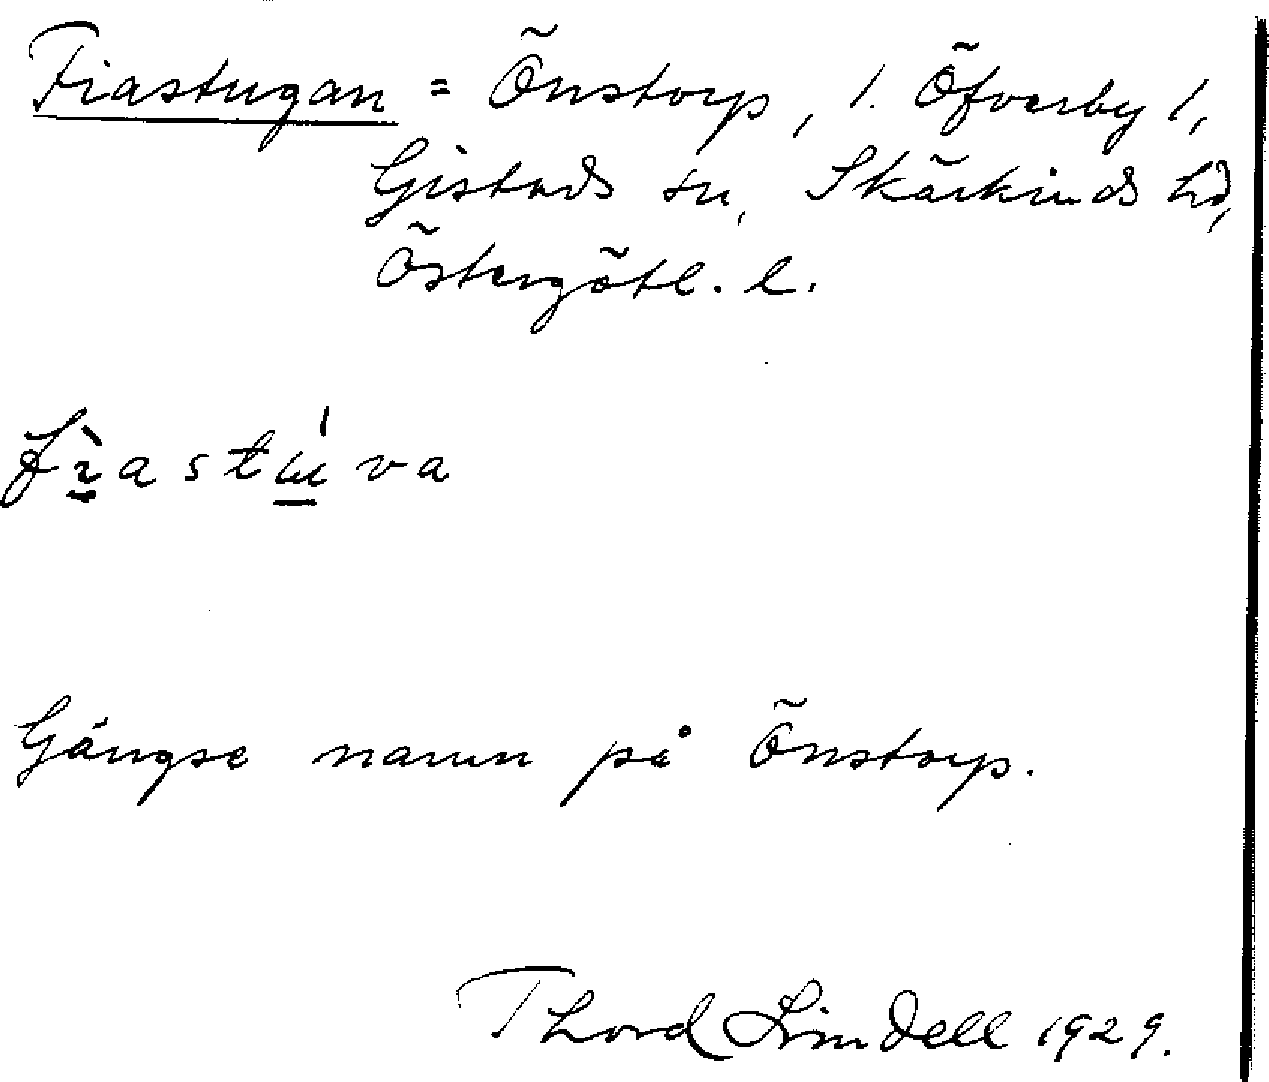 Fiastugan = Önstorp, 1. Öfverby 1,
Gistads sn, Skärkinds hd,
Östergötl. l.
fìastúva
Gängse namn på Önstorp.
Thord Lindell 1929.